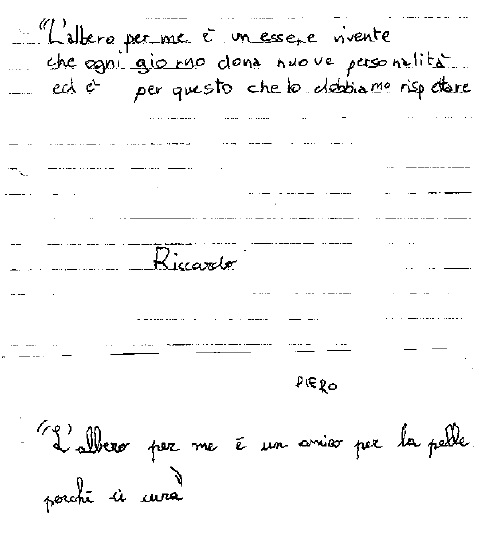 "L'albero per me è un essere vivente
che ogni giorno dona nuove personalità
ed è per questo che lo dobbiamo rispettare
Riccardo
PIERO
"L'albero per me è un amico per la pelle
perchè ci cura"